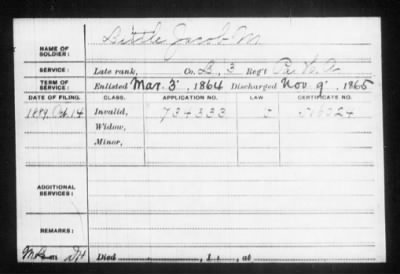 NAME OF SOLDIER: Little Jacob M
SERVICE: Late rank, Co. B, 3 Reg't Pa. H. A.
TERM OF SERVICE: Enlisted Mar. 3, 1864 Discharged Nov. 9, 1865
DATE OF FILING. CLASS. APPLICATION NO. LAW CERTIFICATE NO.
1889, Oct 14 Invalid, 734333
Widow,
Minor,
ADDITIONAL SERVICES:
REMARKS:
Died , 1 , at